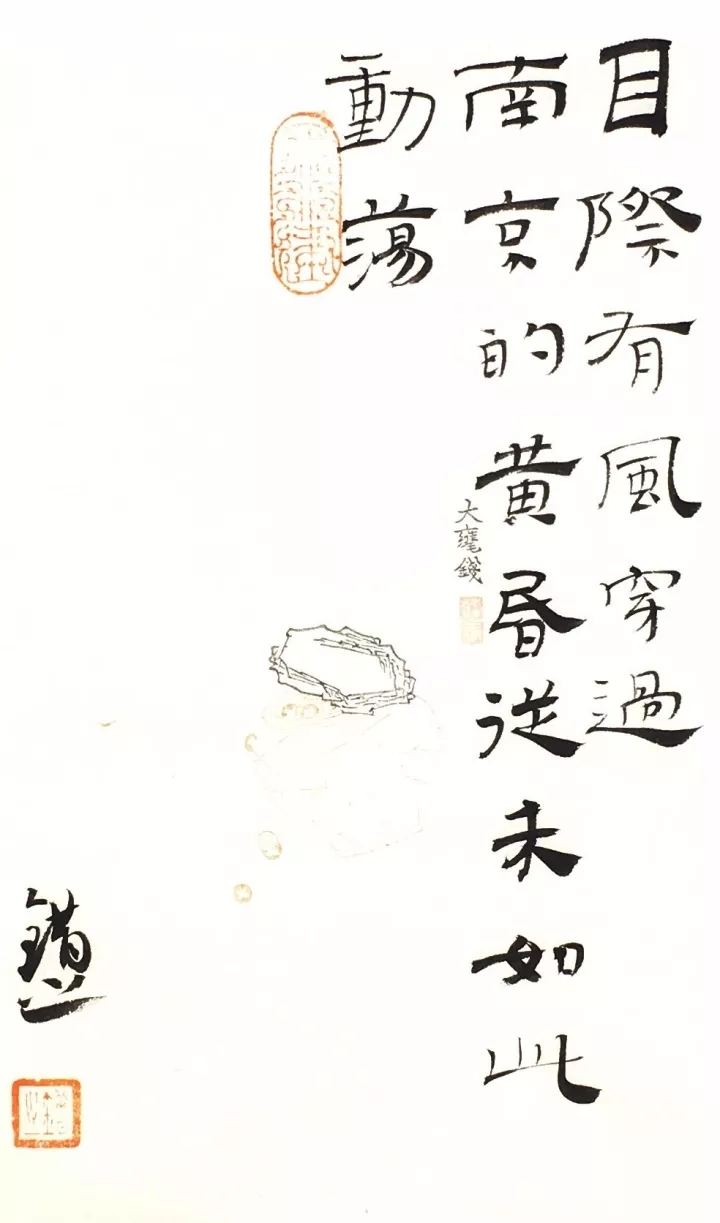 目際有風穿過
南京的黄昏從未如此
動荡
大
錢